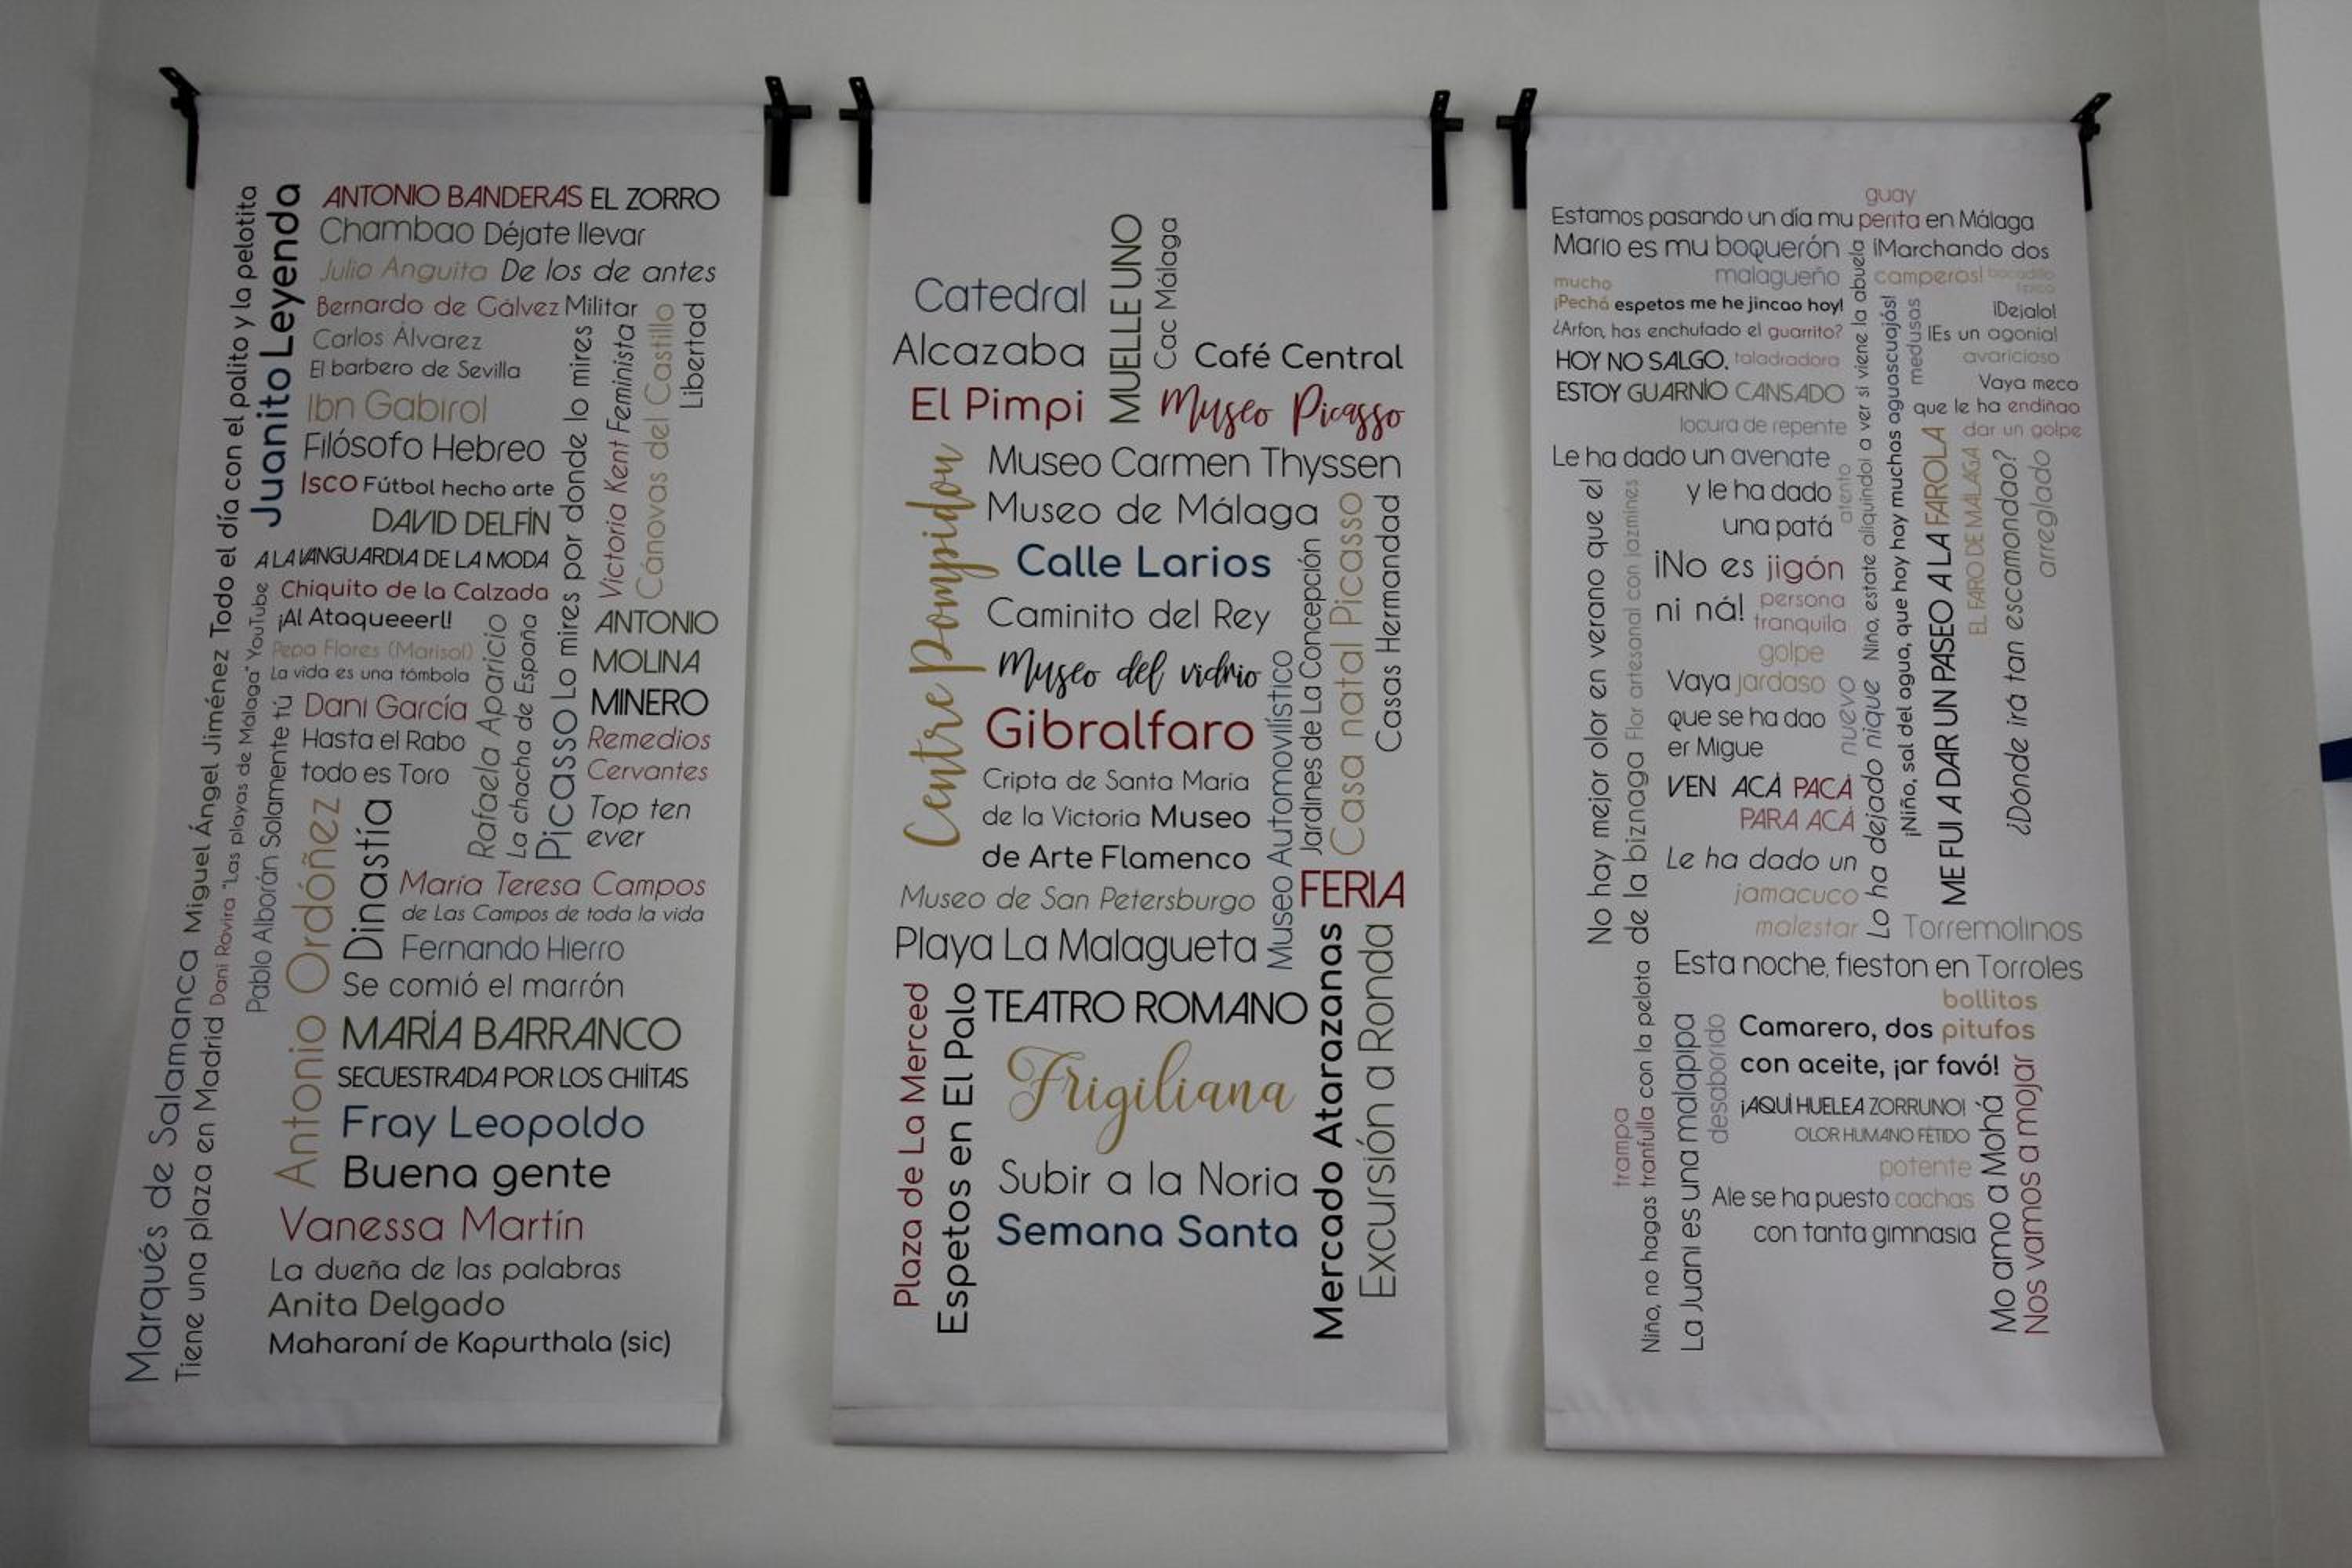 ANTONIO BANDERAS EL ZORRO
Chambao Déjate llevar
Julio Anguita De los de antes
Bernardo de Gálvez Militar
Carlos Álvarez
El barbero de Sevilla
Ibn Gabirol
Filósofo Hebreo
Isco Fútbol hecho arte
DAVID DELFÍN
A LA VANGUARDIA DE LA MODA
Chiquito de la Calzada
¡Al Ataqueeerl!
Pepa Flores (Marisol)
La vida es una tómbola
Dani García
Hasta el Rabo
todo es Toro
Juanito Leyenda
Marqués de Salamanca
Tiene una plaza en Madrid
Miguel Ángel Jiménez Todo el día con el palito y la pelotita
Dani Rovira "Las playas de Málaga" YouTube
Pablo Alborán Solamente tú
Antonio Ordóñez
Dinastía
Rafaela Aparicio
La chacha de España
Picasso Lo mires por donde lo mires
Victoria Kent Feminista
Cánovas del Castillo
Libertad
ANTONIO
MOLINA
MINERO
Remedios
Cervantes
Top ten
ever
María Teresa Campos
de Las Campos de toda la vida
Fernando Hierro
Se comió el marrón
MARÍA BARRANCO
SECUESTRADA POR LOS CHIÍTAS
Fray Leopoldo
Buena gente
Vanessa Martín
La dueña de las palabras
Anita Delgado
Maharaní de Kapurthala (sic)
Catedral
Alcazaba
El Pimpi
MUELLE UNO
Cac Málaga
Café Central
Museo Picasso
Centre Pompidou
Museo Carmen Thyssen
Museo de Málaga
Calle Larios
Caminito del Rey
Museo del vidrio
Gibralfaro
Cripta de Santa María
de la Victoria Museo
de Arte Flamenco
Museo de San Petersburgo
Playa La Malagueta
Museo Automovilístico
Jardines de La Concepción
Casa natal Picasso
Casas Hermandad
FERIA
Plaza de La Merced
Espetos en El Palo
TEATRO ROMANO
Frigiliana
Subir a la Noria
Semana Santa
Mercado Atarazanas
Excursión a Ronda
guay
Estamos pasando un día mu perita en Málaga
Mario es mu boquerón
malagueño
¡Marchando dos
camperos! bocadillo
típico
mucho
¡Pechá espetos me he jincao hoy!
¿Arfon, has enchufado el guarrito?
HOY NO SALGO. taladradora
ESTOY GUARNÍO CANSADO
locura de repente
Le ha dado un avenate
y le ha dado
una patá
¡No es jigón
ni ná! persona
tranquila
golpe
Vaya jardaso
que se ha dao
er Migue
VEN ACÁ PACÁ
PARA ACÁ
Le ha dado un
jamacuco
malestar
atento
Niño, estate aliquindoi a ver si viene la abuela
nuevo
Lo ha dejado nique
medusas
¡Niño, sal del agua, que hoy hay muchas aguascuajás!
¡Dejalo!
¡Es un agonía!
avaricioso
Vaya meco
que le ha endiñao
dar un golpe
ME FUI A DAR UN PASEO A LA FAROLA
EL FARO DE MÁLAGA
¿Dónde irá tan escamondao?
arreglado
No hay mejor olor en verano que el
de la biznaga Flor artesanal con jazmines
Torremolinos
Esta noche, fieston en Torroles
trampa
Niño, no hagas tranfulla con la pelota
La Juani es una malapipa
desaborido
bollitos
Camarero, dos pitufos
con aceite, ¡ar favó!
¡AQUÍ HUELE A ZORRUNO!
OLOR HUMANO FÉTIDO
potente
Ale se ha puesto cachas
con tanta gimnasia
Mo amo a Mohá
Nos vamos a mojar